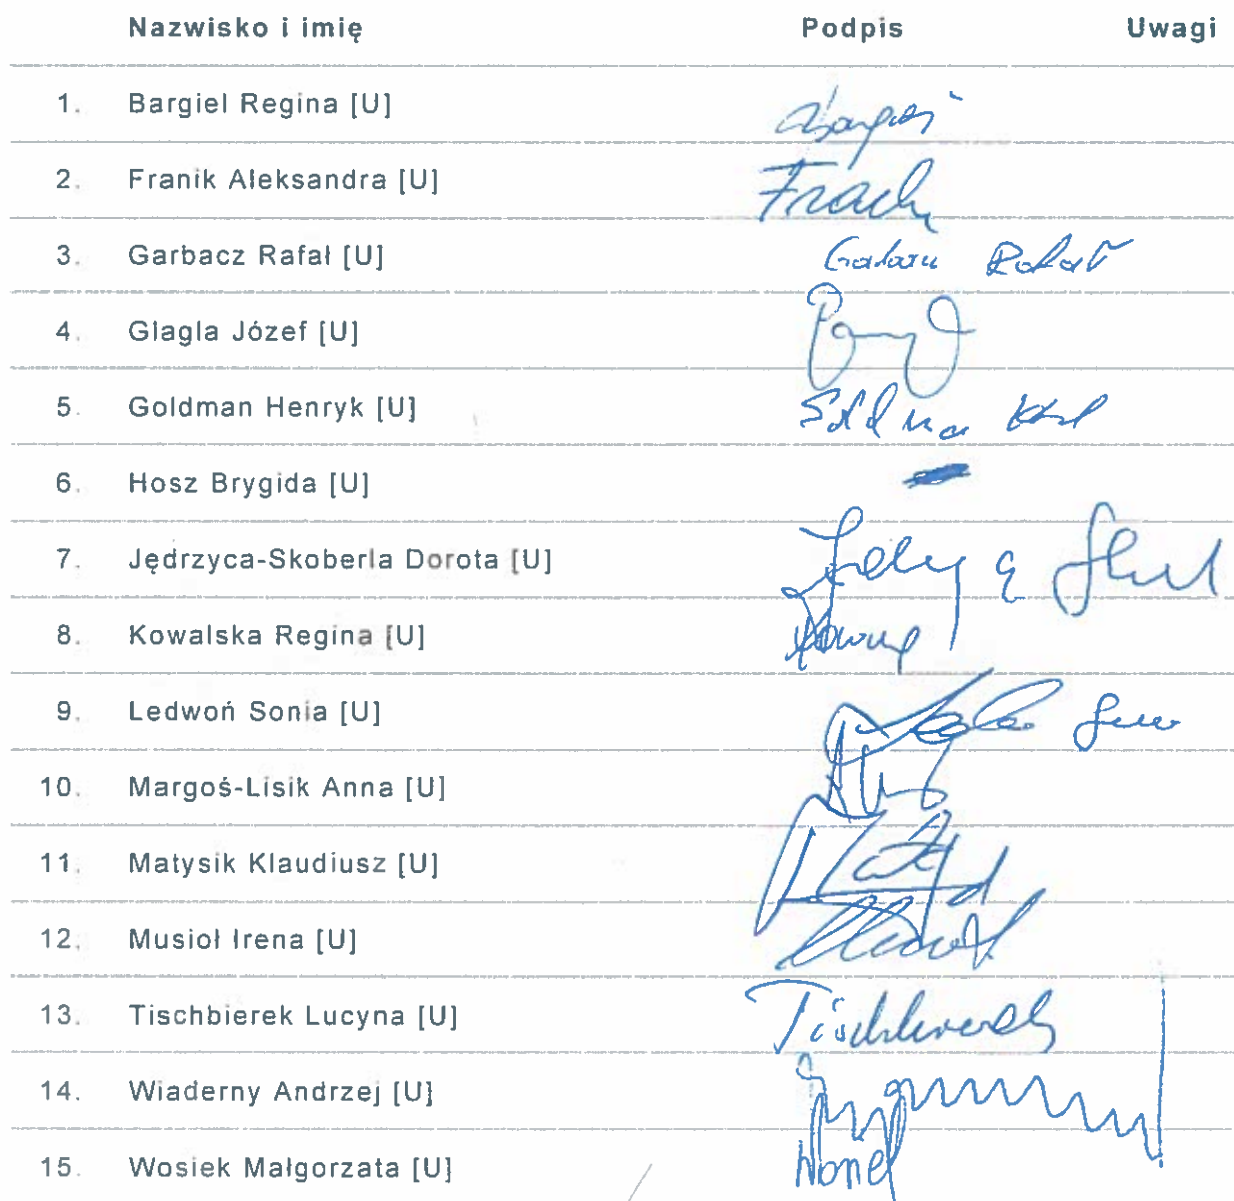 Nazwisko i imię Podpis Uwagi
1. Bargiel Regina [U]
2. Franik Aleksandra [U]
3. Garbacz Rafał [U]
4. Glagla Józef [U]
5. Goldman Henryk [U]
6. Hosz Brygida [U]
7. Jędrzyca-Skoberla Dorota [U]
8. Kowalska Regina [U]
9. Ledwoń Sonia [U]
10. Margoś-Lisik Anna [U]
11. Matysik Klaudiusz [U]
12. Musioł Irena [U]
13. Tischbierek Lucyna [U]
14. Wiaderny Andrzej [U]
15. Wosiek Małgorzata [U]